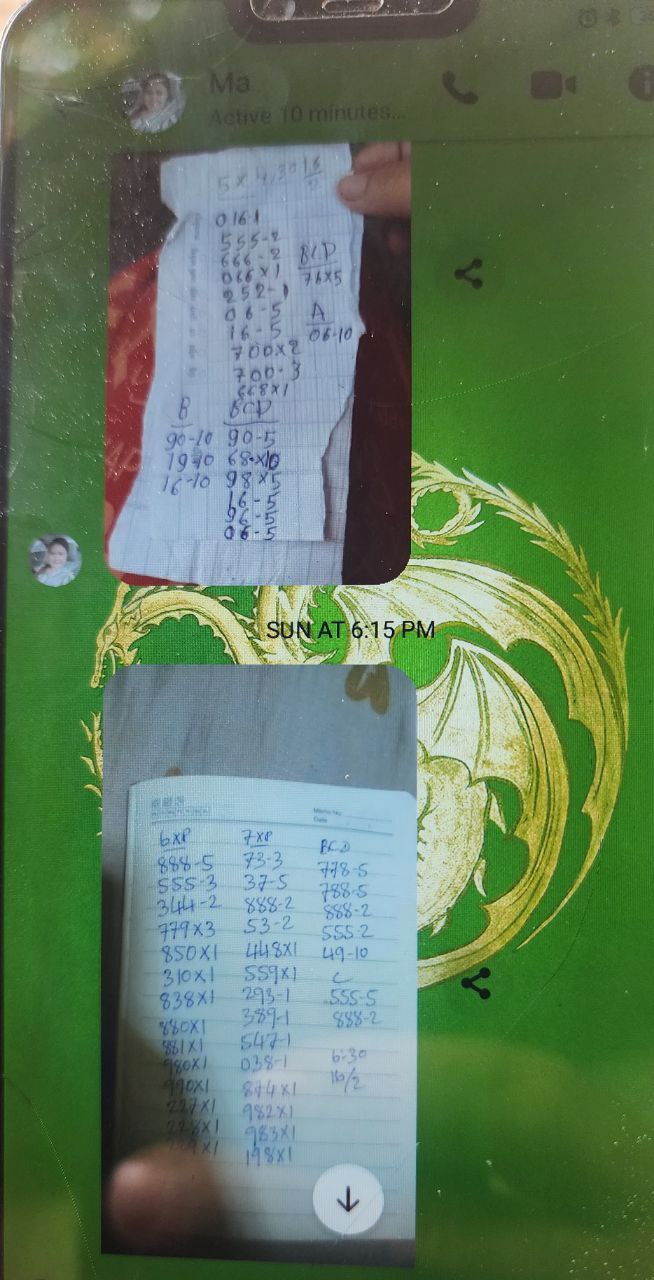 Ma
Active 10 minutes...
5 x 4,30 16/2
016-1
555-2
666-2
066x1
252-1
06-5
16-5
700x2
700-3
668x1
BCD
76x5
A
06-10
B
90-10
19-10
16-10
BCD
90-5
68x10
98x5
16-5
96-5
06-5
SUN AT 6:15 PM
Memo No.
Date
6XP
888-5
555-3
344-2
779x3
850x1
310x1
838x1
880x1
881x1
980x1
990x1
227x1
228x1
7XP
73-3
37-5
888-2
53-2
448x1
559x1
293-1
389-1
547-1
038-1
874x1
982x1
983x1
198x1
BCD
778-5
788-5
888-2
555-2
49-10
C
555-5
888-2
6-30
16/2